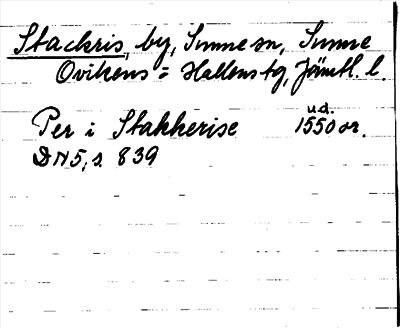 Stackris, by, Sunne sn, Sunne
Ovikens = Hallens tg, Jämtl. l.
Per i Stakkerise u.d. 1550 or.
DN 5, s. 839